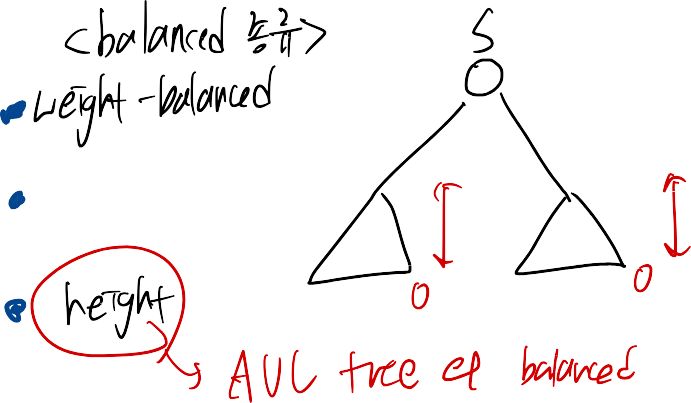 <balanced 종류>
S
weight-balanced
0
0
height
AVL tree의 balanced